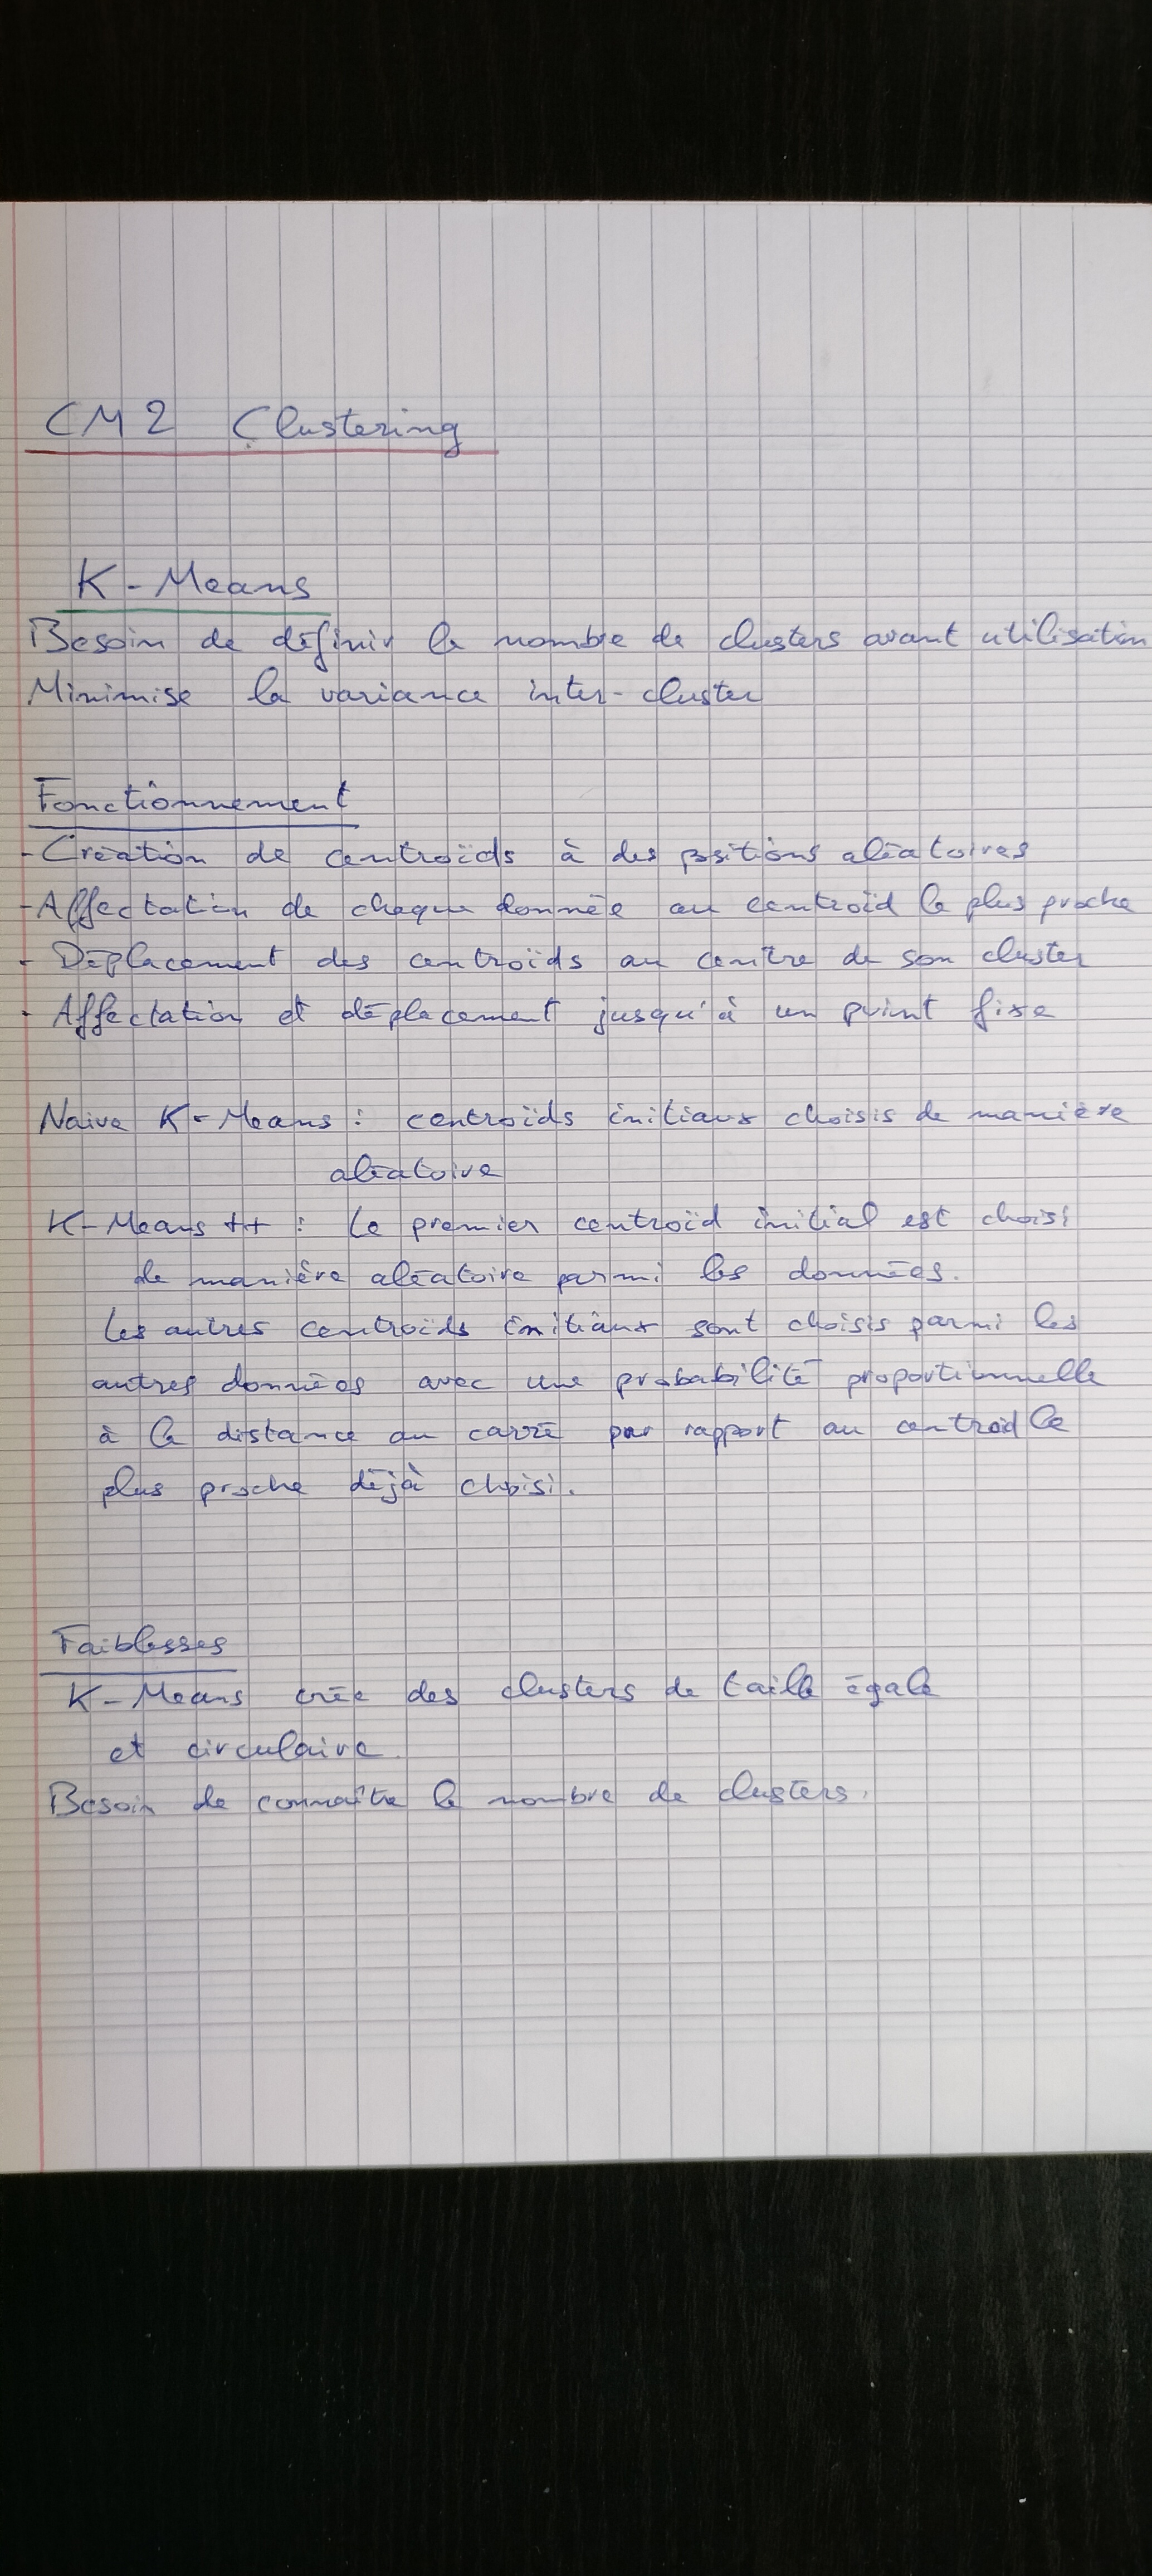 CM 2 Clustering
K-Means
Besoin de définir le nombre de clusters avant utilisation
Minimise la variance inter-cluster
Fonctionnement
- Création de centroïds à des positions aléatoires
- Affectation de chaque donnée au centroïd le plus proche
- Déplacement des centroïds au centre de son cluster
- Affectation et déplacement jusqu'à un point fixe
Naive K-Means : centroïds initiaux choisis de manière
aléatoire
K-Means ++ : Le premier centroïd initial est choisi
de manière aléatoire parmi les données.
Les autres centroïds initiaux sont choisis parmi les
autres données avec une probabilité proportionnelle
à la distance au carré par rapport au centroid le
plus proche déjà choisi.
Faiblesses
K-Means crée des clusters de taille égale
et circulaire
Besoin de connaître le nombre de clusters.